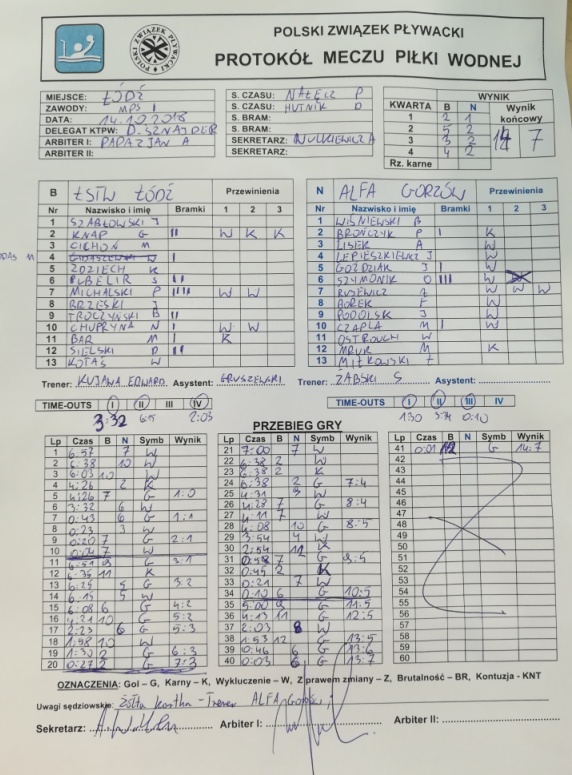 POLSKI ZWIĄZEK PŁYWACKI
PROTOKÓŁ MECZU PIŁKI WODNEJ
MIEJSCE: ŁÓDŹ
ZAWODY: MPS I
DATA: 14.10.2018
DELEGAT KTPW: D. SZNAJDER
ARBITER I: PADAZJAN A
ARBITER II:
S. CZASU: NAŁĘCZ P
S. CZASU: HUTNIK D
S. BRAM:
S. BRAM:
SEKRETARZ: WULKIEWICZ A
SEKRETARZ:
WYNIK
KWARTA B N Wynik końcowy
1 2 1
2 5 2
3 3 2
4 4 2
14 7
Rz. karne
B ŁSTW ŁÓDŹ Przewinienia
Nr Nazwisko i imię Bramki 1 2 3
1 SZABŁOWSKI J
2 KNAP G II W K K
3 CICHOŃ M
4 I
5 ZDZIECH K
6 S II
7 MICHALSKI P IIII W W
8 BRZESKI J
9 TROCZYŃSKI B II
10 CHUPRYNA N I W W
11 BAR M K
12 SIELSKI D II
13 KOTAŚ W
Trener: KUJAWA EDWARD Asystent: GRUSZEWSKI
N ALFA GORZÓW Przewinienia
Nr Nazwisko i imię Bramki 1 2 3
1 WIŚNIEWSKI B
2 BROŃCZYK P I K
3 LISEK A W
4 LEPIESZKIEWICZ J W
5 GOŹDZIAK J I W
6 SZYMONIK O III W
7 W W W
8 BOREK F W
9 PODOLSK J W
10 CZAPLA M I W
11 OSTROUCH W
12 MRUK M K
13
Trener: ŻABSKI S Asystent:
TIME-OUTS I II III IV
3:32 2:03
TIME-OUTS I II III IV
1:30 0:10
PRZEBIEG GRY
Lp Czas B N Symb Wynik
1 6:57 7 W
2 6:38 10 W
3 6:03 10 W
4 4:26 2 K
5 4:26 7 G 1:0
6 3:32 6 W
7 0:43 6 G 1:1
8 0:23 3 W
9 0:20 7 G 2:1
10 7 W
11 6:51 9 G 3:1
12 6:35 11 K
13 6:25 5 G 3:2
14 6:15 5 W
15 6:08 6 G 4:2
16 4:21 10 G 5:2
17 2:23 6 G 5:3
18 1:58 10 W
19 1:30 2 G 6:3
20 0:27 2 G 7:3
21 7:00 7 W
22 6:38 2 W
23 6:38 2 K
24 6:38 2 G 7:4
25 4:31 W
26 4:28 7 G 8:4
27 4:11 7 W
28 4:08 10 G 8:5
29 3:54 4 W
30 2:54 12 K
31 0:58 7 G 9:5
32 0:45 2 K
33 0:21 7 W
34 0:10 6 G 10:5
35 5:00 9 G 11:5
36 4:13 11 G 12:5
37 2:03 8 W
38 1:53 12 G 13:5
39 0:46 G 13:6
40 0:03 6 G 13:7
41 0:01 12 G 14:7
42
43
44
45
46
47
48
49
50
51
52
53
54
55
56
57
58
59
60
OZNACZENIA: Gol – G, Karny – K, Wykluczenie – W, Z prawem zmiany – Z, Brutalność – BR, Kontuzja - KNT
Uwagi sędziowskie: Żółta kartka – Trener ALFA Gorzów
Sekretarz: Arbiter I: Arbiter II: